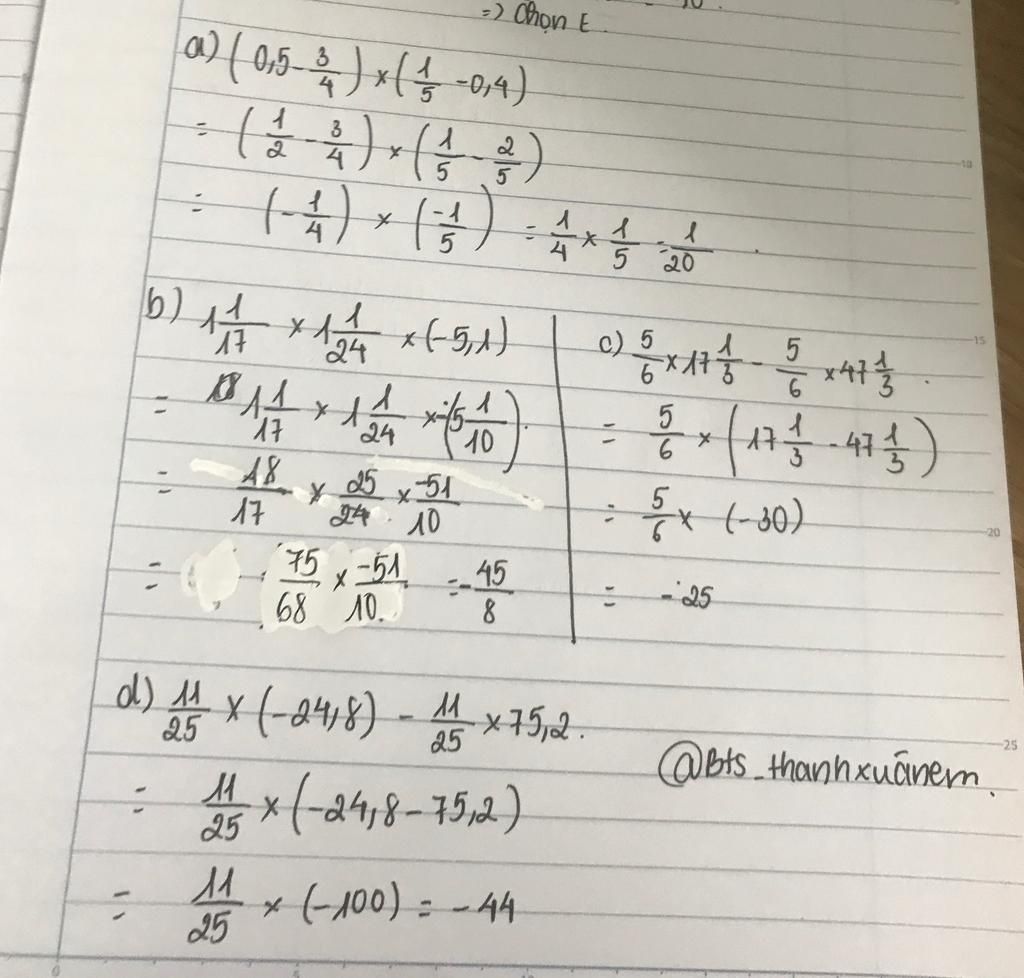 => Chọn E.
a) (0,5 - 3/4) × (1/5 - 0,4)
= (1/2 - 3/4) × (1/5 - 2/5)
= (-1/4) × (-1/5) = 1/4 × 1/5 = 1/20 .
b) 1 1/17 × 1 1/24 × (-5,1)
= 1 1/17 × 1 1/24 × (-5 1/10).
= 18/17 × 25/24 × -51/10
= 75/68 × -51/10 = -45/8
c) 5/6 × 17 1/3 - 5/6 × 47 1/3 .
= 5/6 × (17 1/3 - 47 1/3)
= 5/6 × (-30)
= -25
d) 11/25 × (-24,8) - 11/25 × 75,2.
@Bts_thanhxuânem.
= 11/25 × (-24,8 - 75,2)
= 11/25 × (-100) = -44
10
15
20
25
0
5